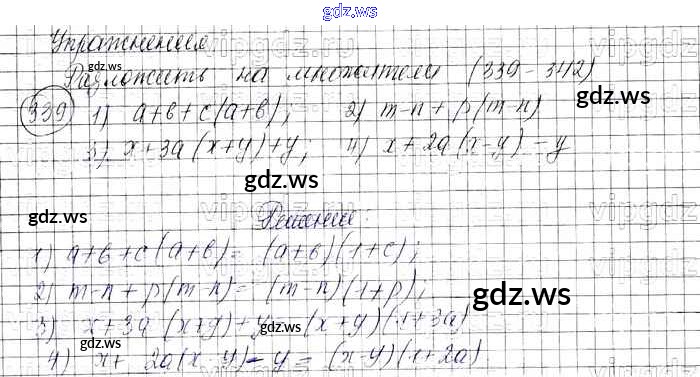 gdz.ws
Упражнения
Разложить на множители (339-342)
339 1) a+b+c(a+b); 2) m-n+p(m-n)
3) x+3a(x+y)+y; 4) x+2a(x-y)-y
Решение:
1) a+b+c(a+b)= (a+b)(1+c);
2) m-n+p(m-n)= (m-n)(1+p);
3) x+3a(x+y)+y= (x+y)(1+3a)
4) x+ 2a(x-y)-y = (x-y)(1+2a)